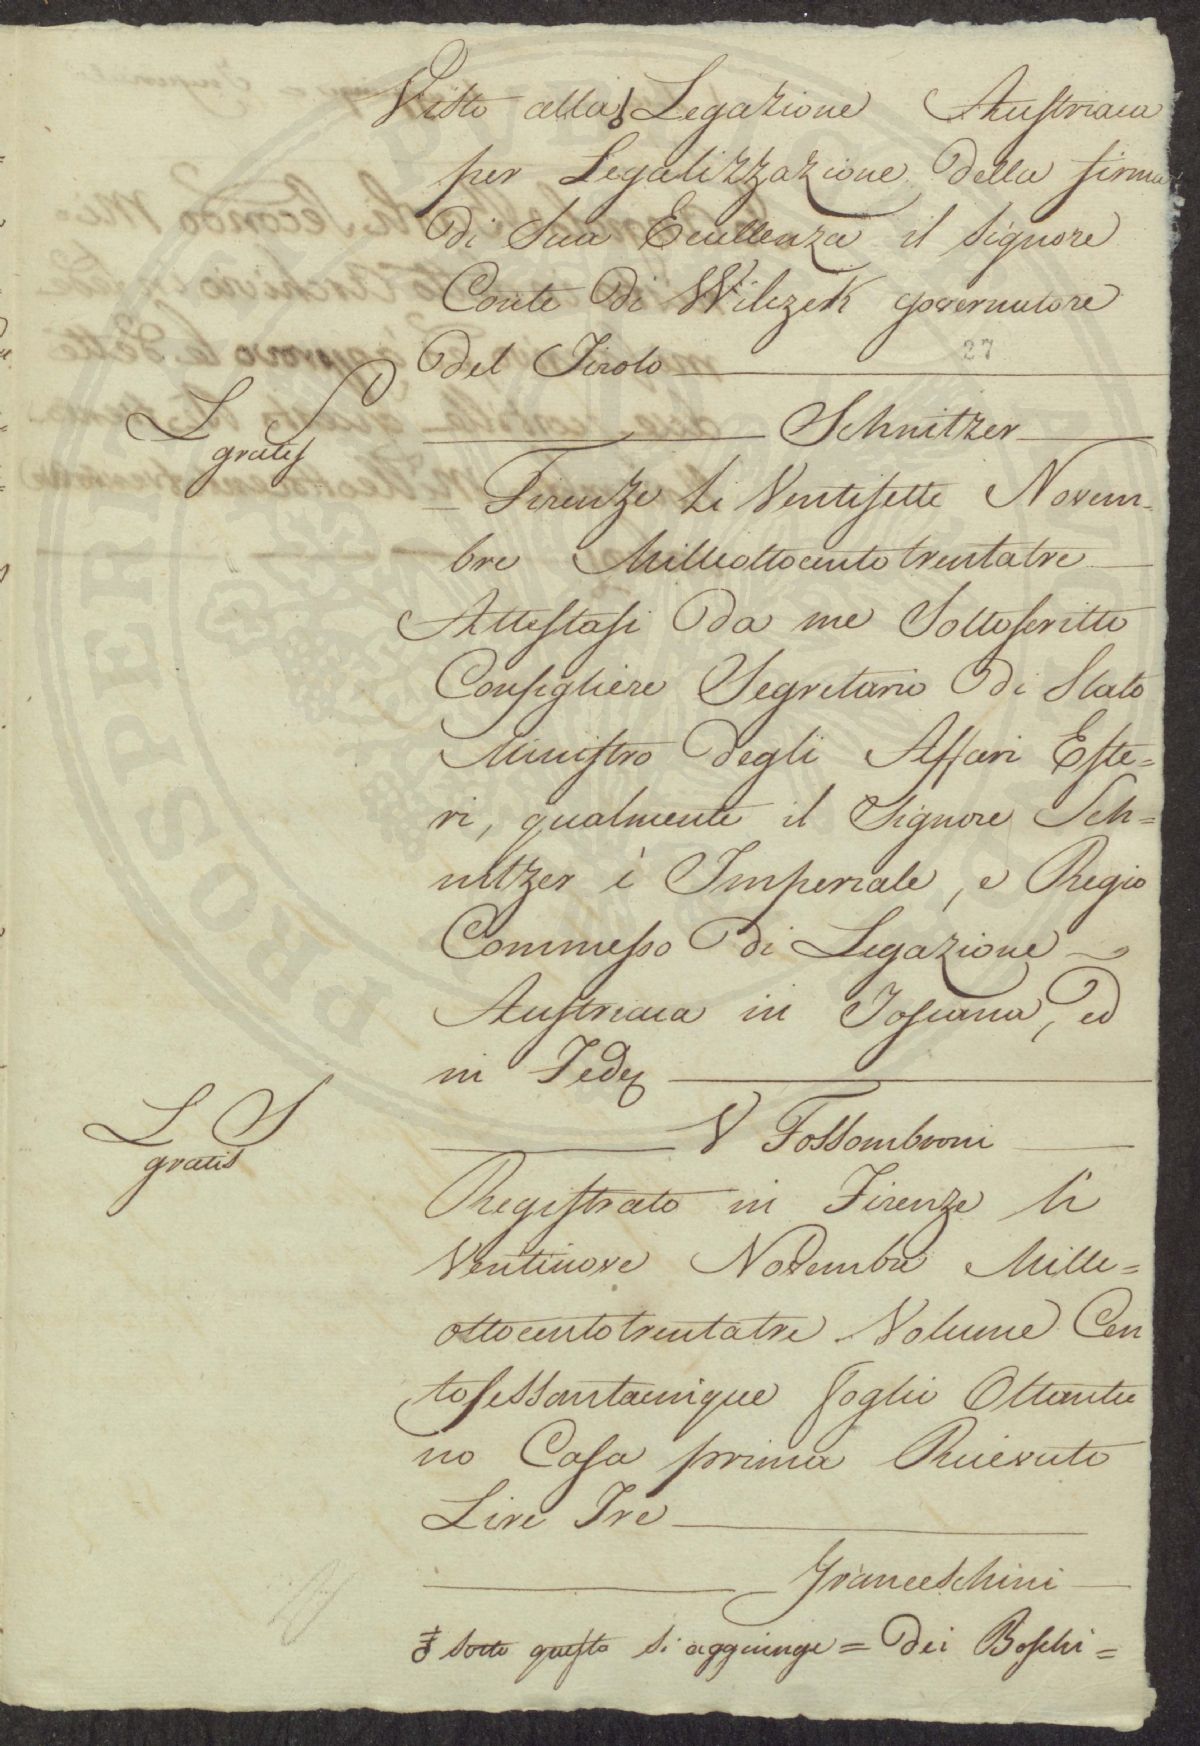 Visto alla Legazione Austriaca
per Legalizzazione della firma
di Sua Eccellenza il Signore
Conte di Wilczek governatore
del Tirolo
27
L S
gratis
Schnitzer
Firenze li Ventisette Novem-
bre Milleottocentotrentatre
Attestasi da me Sottoscritto
Consigliere Segretario di Stato
Ministro degli Affari Este=
ri, qualmente il Signore Sch=
nitzer è Imperiale, e Regio
Commesso di Legazione
Austriaca in Toscana, ed
in Fede
L S
gratis
V Fossombroni
Registrato in Firenze li
Ventinove Novembre Mille=
ottocentotrentatre Volume Cen
tosessantacinque foglio Ottantu
no Casa prima Ricevuto
Lire Tre
Franceschini
sotto questo si aggiunge = Dei Boschi=